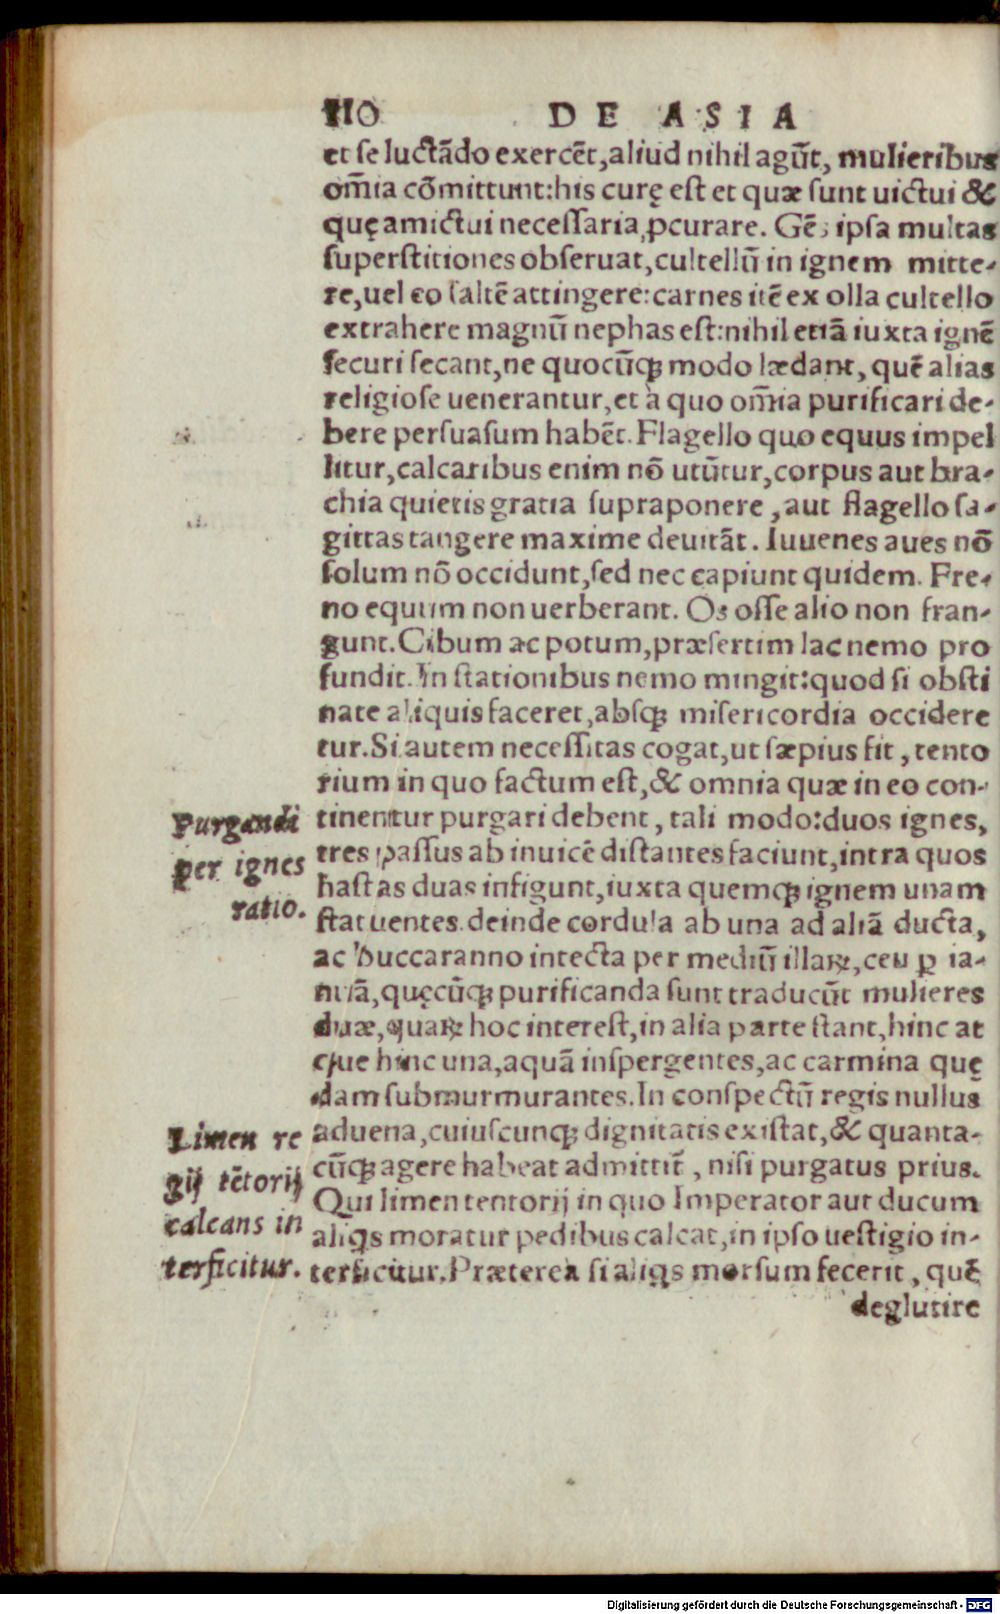 110 DE ASIA
et se luctãdo exercẽt, aliud nihil agũt, mulieribus
om̃ia cõmittunt: his curę est et quæ sunt uictui &
quę amictui necessaria ꝓcurare. Gẽs ipsa multas
superstitiones obseruat, cultellũ in ignem mitte-
re, uel eo saltẽ attingere: carnes itẽ ex olla cultello
extrahere magnũ nephas est: nihil etiã iuxta ignẽ
securi secant, ne quocũqꝫ modo lædant, quẽ alias
religiose uenerantur, et à quo om̃ia purificari de-
bere persuasum habẽt. Flagello quo equus impel
litur, calcaribus enim nõ utũtur, corpus aut bra-
chia quietis gratia supraponere, aut flagello sa-
gittas tangere maxime deuitãt. Iuuenes aues nõ
solum nõ occidunt, sed nec capiunt quidem. Fre-
no equum non uerberant. Os osse alio non fran-
gunt. Cibum ac potum, præsertim lac nemo pro
fundit. In stationibus nemo mingit: quod si obsti
nate aliquis faceret, absqꝫ misericordia occidere
tur. Si autem necessitas cogat, ut sæpius fit, tento
rium in quo factum est, & omnia quæ in eo con-
Purgandi
per ignes
ratio.
tinentur purgari debent, tali modo: duos ignes,
tres passus ab inuicẽ distantes faciunt, intra quos
hastas duas infigunt, iuxta quemqꝫ ignem unam
statuentes. deinde cordula ab una ad aliã ducta,
ac buccaranno intecta per mediũ illaꝝ, ceu ꝑ ia-
nuã, quęcũqꝫ purificanda sunt traducũt mulieres
duæ, quaꝝ hoc interest, in alia parte stant, hinc at
que hinc una, aquã inspergentes, ac carmina quę
dam submurmurantes. In conspectũ regis nullus
Limen re
gij tẽtorij
calcans in
terficitur.
aduena, cuiuscunqꝫ dignitatis existat, & quanta-
cũqꝫ agere habeat admittit̃, nisi purgatus prius.
Qui limen tentorij in quo Imperator aut ducum
aliqs moratur pedibus calcat, in ipso uestigio in-
terficitur. Præterea si aliqs morsum fecerit, quẽ
deglutire
Digitalisierung gefördert durch die Deutsche Forschungsgemeinschaft - DFG